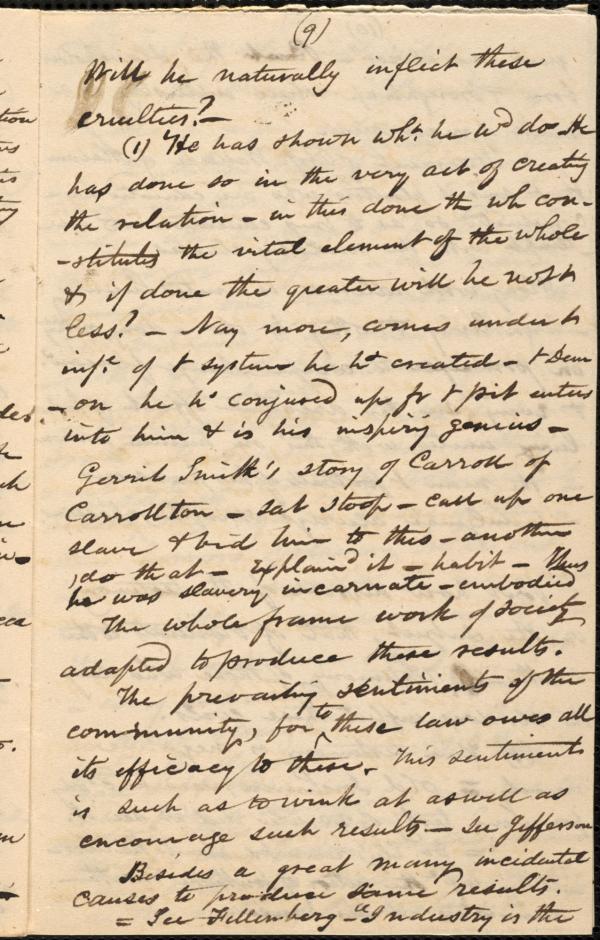 (9)
Will he naturally inflict these
cruelties? —
(1) He has shown wht. he wd do. He
has done so in the very act of creating
the relation – in this done th wh con-
-stitutes the vital element of the whole
& if done the greater will he not t
less? – Nay more, comes under t
infe. of t system he hd created – t Dem
-on he hs conjured up fr t pit enters
into him & is his inspirg genius –
Gerrit Smith's story of Carroll of
Carrollton – sat stoop – call up one
slave & bid him to this – another
do that – Explaind it – habit – Thus
he was slavery incarnate – embodied
The whole frame work of society
adapted to produce these results.
The prevailing sentiments of the
community, for to these law owes all
its efficacy to these. This sentiments
is such as to wink at as well as
encourage such results – see Jefferson
Besides a great many incidental
causes to produce same results.
= See Fellenberg – "Industry is the